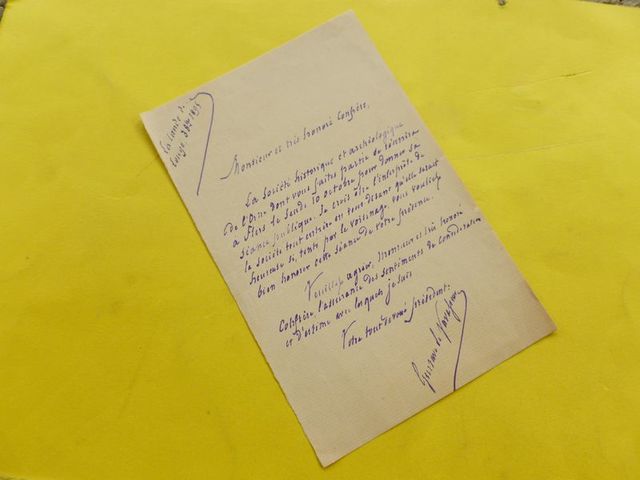 La Lande de
Lougé, 3 8bre 1895
Monsieur et très honoré Confrère,
La Société historique et archéologique
de l'Orne dont vous faites partie se réunira
à Flers le Lundi 10 octobre pour donner sa
séance publique. Je crois être l'interprète de
la société tout entière en vous disant qu'elle serait
heureuse si, tenté par le voisinage, vous vouliez
bien honorer cette séance de votre présence.
Veuillez agréer, Monsieur et très honoré
Confrère, l'assurance des sentiments de considération
et d'estime avec lesquels je suis
Votre tout dévoué président: